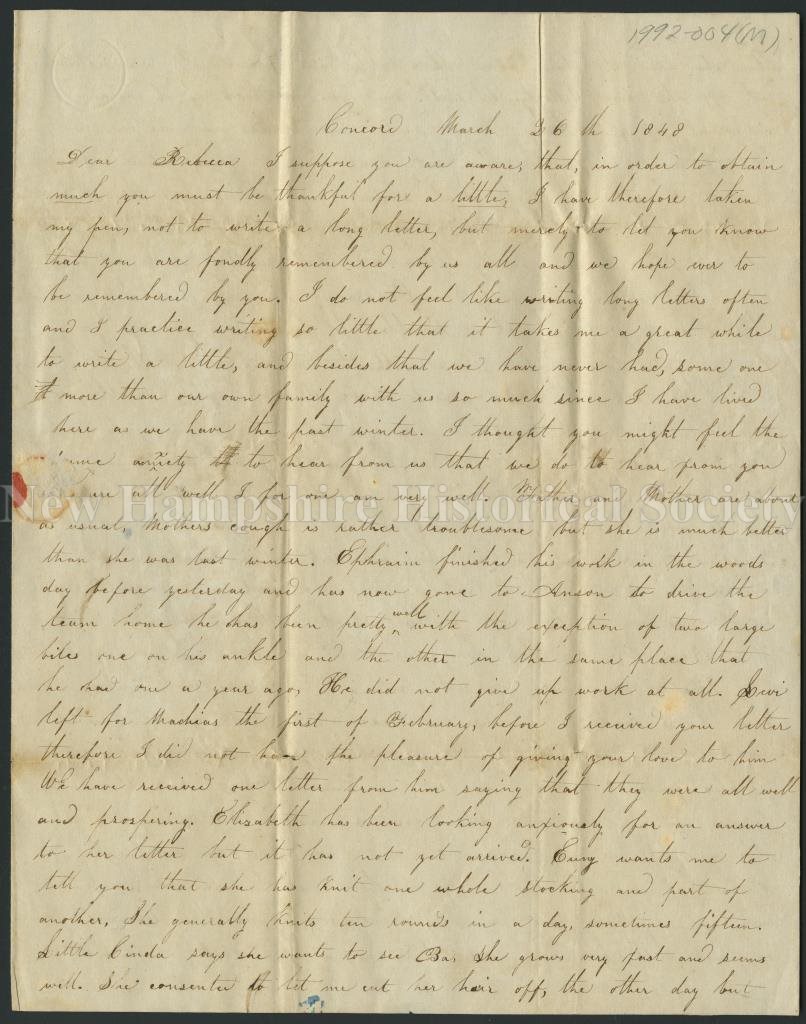 1992-004(M)
Concord March 26th 1848
Dear Rebecca I suppose you are aware, that, in order to obtain
much you must be thankful for a little, I have therefore taken
my pen, not to write a long letter, but merely to let you know
that you are fondly remembered by us all and we hope ever to
be remembered by you. I do not feel like writing long letters often
and I practice writing so little that it takes me a great while
to write a little, and besides that we have never had, some one
more than our own family with us so much since I have lived
here as we have the past winter. I thought you might feel the
same anxiety to hear from us that we do to hear from you
are all well I for one am very well. Father and Mother are about
as usual, Mothers cough is rather troublesome but she is much better
than she was last winter. Ephraim finished his work in the woods
day before yesterday and has now gone to Anson to drive the
team home he has been pretty well with the exception of two large
biles one on his ankle and the other in the same place that
he had one a year ago, He did not give up work at all. Levi
left for Machias the first of February, before I received your letter
therefore I did not have the pleasure of giving your love to him
We have received one letter from him saying that they were all well
and prospering. Elizabeth has been looking anxiously for an answer
to her letter but it has not yet arrived. wants me to
tell you that she has knit one whole stocking and part of
another, She generally knits ten rounds in a day, sometimes fifteen.
Little Cinda says she wants to see Ba, She grows very fast and seems
well. She consented to let me cut her hair off, the other day but
New Hampshire Historical Society